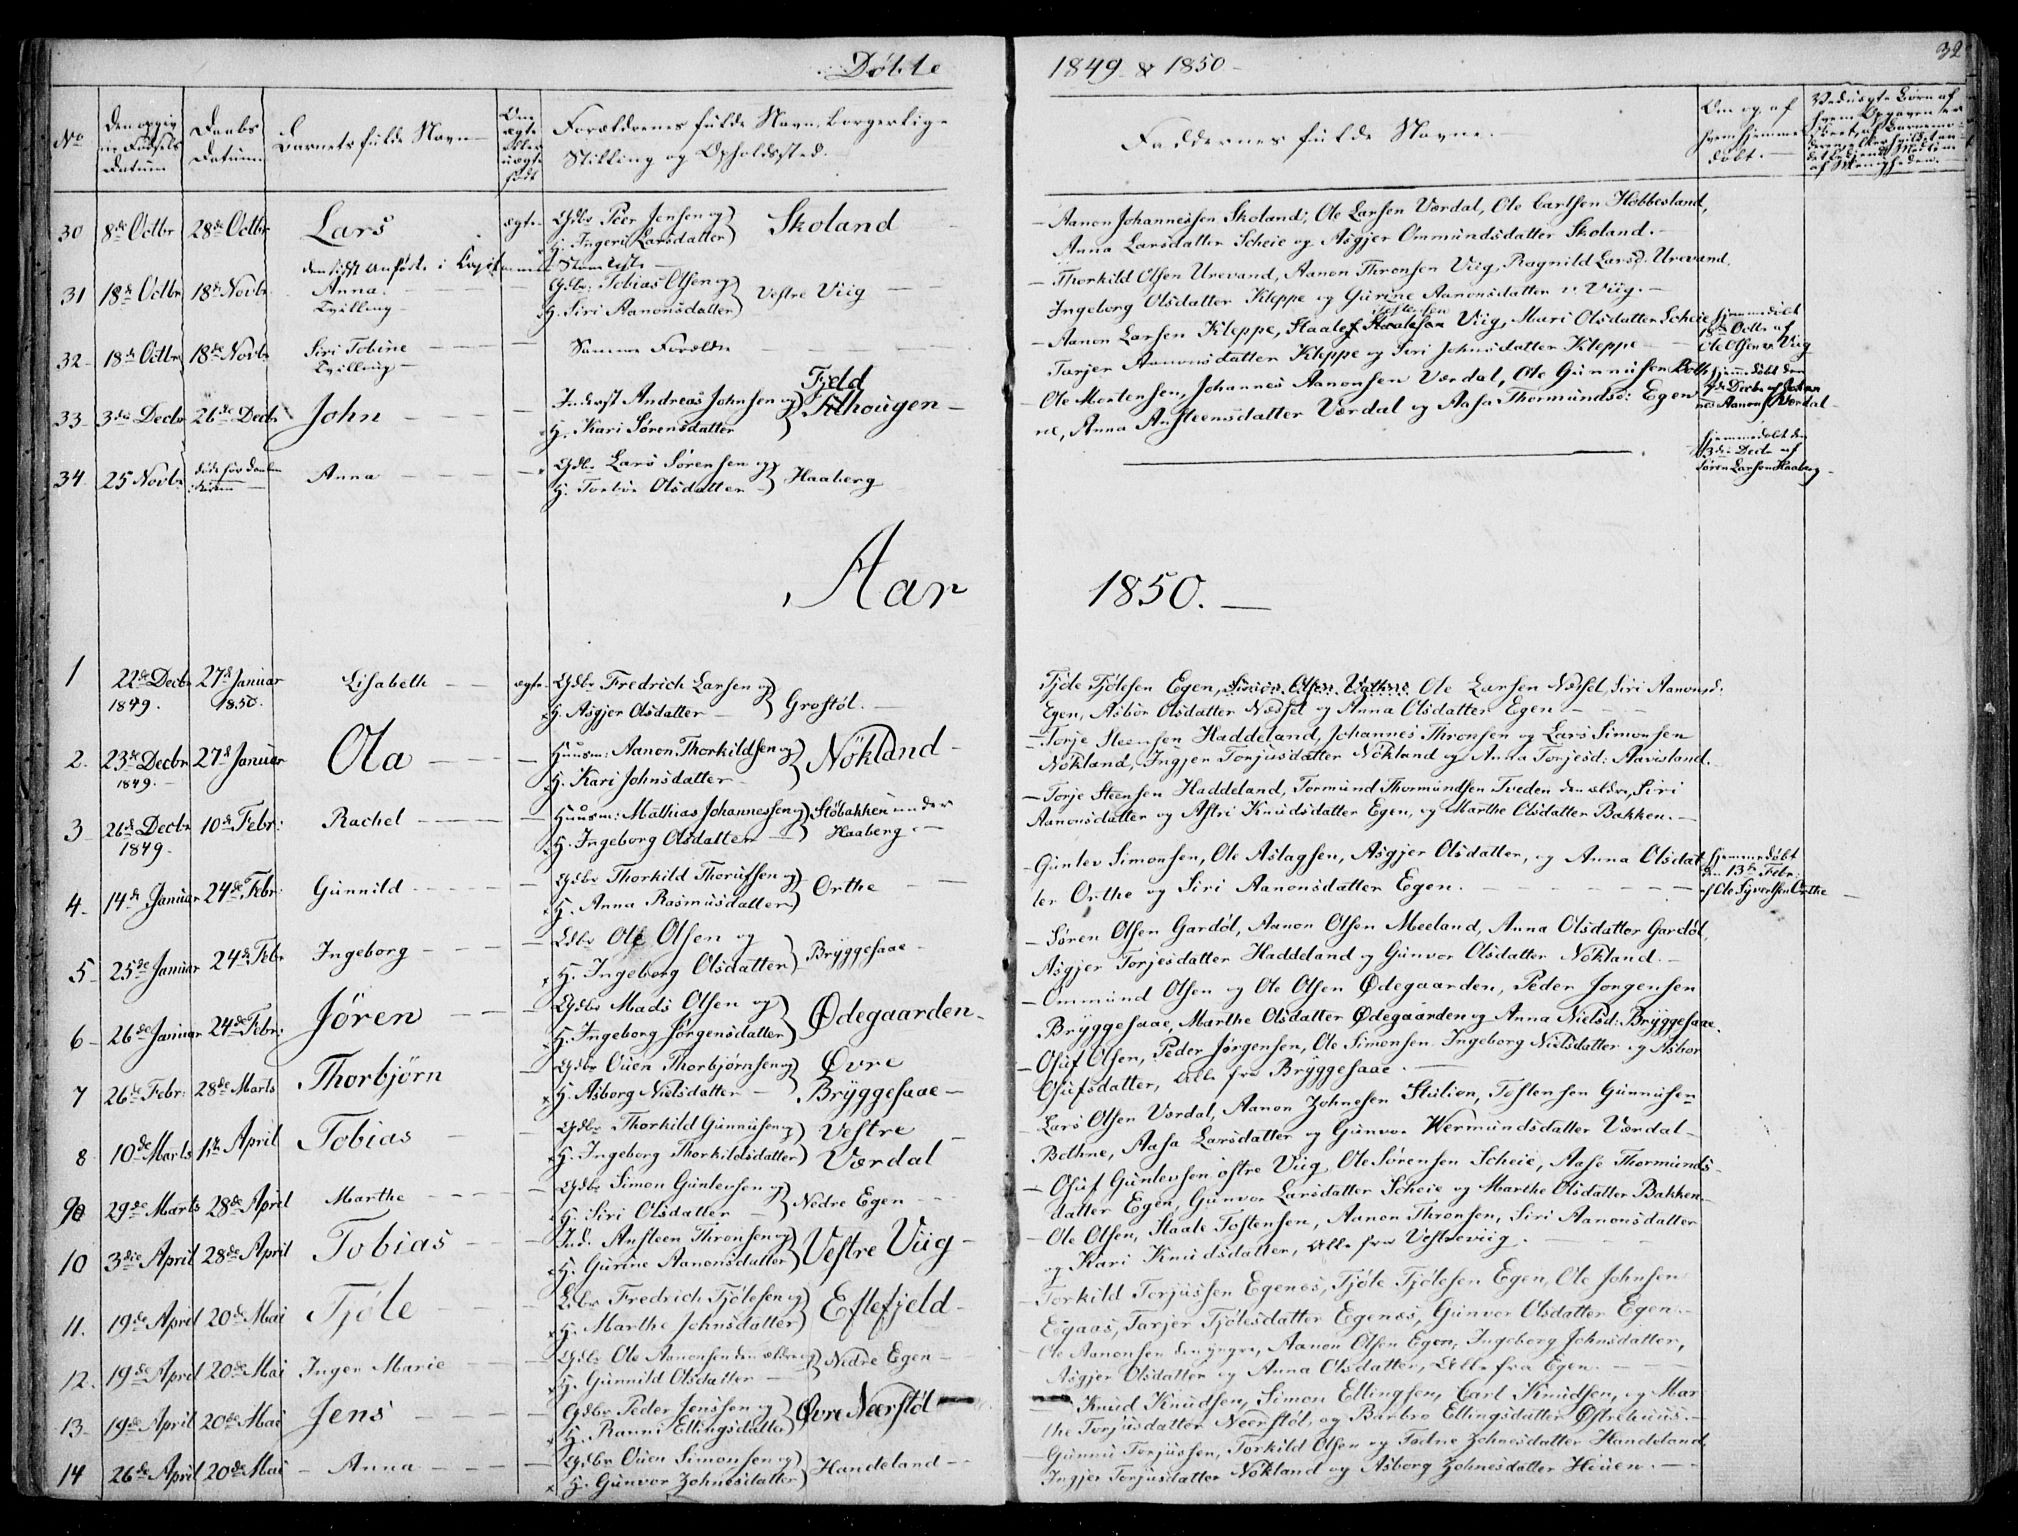 Døbte
1849 & 1850
32
No
Barnets fulde Navn
Daabs Datum
Forældrenes fulde Navn, borgerlige
Stilling og Opholdssted.
Faddernes fulde Navne.
30 8de Octbr 28de Octbr Lars ægte Gdbr Peer Jensen og
H. Ingeri Larsdatter Skoland
Aanon Johannessen Skoland, Ole Larsen Værdal, Ole Carlsen Høbbesland,
Anna Larsdatter Scheie og Asgjer Ommundsdatter Skoland.
31 18de Octbr 18de Novbr Anna Tvilling Gdbr. Tobias Olsen og
H. Siri Aanonsdatter Vestre Viig
Thorkild Olsen Urevand, Aanon Thronsen Viig, Ragnild Larsd. Urevand,
Ingeborg Olsdatter Kleppe og Gurine Aanonsdatter v. Viig.
32 18de Octbr 18de Novbr Siri Tobine Tvilling Samme Forældre
Aanon Larsen Kleppe, Staale Viig, Mari Olsdatter Scheie
Tarjer Aanonsdatter Kleppe og Siri Johnsdatter Kleppe
hjemmedøbt
18de Octbr af
Ole Olsen v. Viig
33 3die Decbr 26de Decbr John Inderst Andreas Johnsen og
H. Kari Sørensdatter Fjeld
Ole Mortensen, Johannes Aanonsen Værdal, Ole Gunnusen
Anna Ansteensdatter Værdal og Aasa Thormundsd: Egen
hjemmedøbt den
34 25 Novbr Anna Gdbr Lars Sørensen og
H. Torbor Olsdatter Haaberg
hjemmedøbt den
3die Decbr af
Søren Larsen Haaberg
Aar 1850.
1 22de Decbr 1849. 27de Januar 1850. Lisabeth ægte Gdbr Fredrich Larsen og
H. Asgjer Olsdatter Grostøl.
Tjøle Tjølesen Egen, Ole Larsen Nedsel, Siri Aanonsd:
Egen, Asbor Olsdatter Nedsel og Anna Olsdatter Egen
2. 23de Decbr 1849. 27de Januar Ola Huusm: Aanon Thorkildsen og
H. Kari Johnsdatter Nökland
Torje Steensen Haddeland, Johannes Thronsen og Lars Simonsen
Nökland, Ingjer Torjusdatter Nökland og Anna Torjesd: Aavesland.
3 26de Decbr 1849. 10de Febr: Rachel Huusm: Mathias Johannessen og
H. Ingeborg Olsdatter Støbakken under Haaberg
Torje Steensen Haddeland, Tormund Thormundsen Tveden den ældre, Siri
Aanonsdatter og Astri Knudsdatter Egen, og Marthe Olsdatter Bakken.
4 14de Januar 24de Febr: Gunnild Gdbr Thorkild Thorufsen og
H. Anna Rasmusdatter Orthe
Gunlev Simonsen, Ole Aslagsen, Asgjer Olsdatter, og Anna Olsdat
ter Orthe og Siri Aanonsdatter Egen.
hjemmedøbt
den 13de Febr:
af Ole Syvertsen Orthe
5 25de Januar 24de Febr Ingeborg Gdbr Ole Olsen og
H. Ingeborg Olsdatter Bryggesaae
Søren Olsen Gardøl, Aanon Olsen Meeland, Anna Olsdatter Gardøl,
Asgjer Torjesdatter Haddeland og Gunvor Olsdatter Nökland.
6 26de Januar 24de Febr: Jören Gdbr Mads Olsen og
H. Ingeborg Jørgensdatter Ødegaarden
Ommund Olsen og Ole Olsen Ødegaarden, Peder Jørgensen
Bryggesaae, Marthe Olsdatter Ødegaarden og Anna Nielsd: Bryggesaae.
7 26de Febr: 28de Marts Thorbjörn Gdbr Ouen Thorbjørnsen og
H. Asborg Nielsdatter Øvre Bryggesaae
Osuf Olsen, Peder Jørgensen, Ole Simonsen Ingeborg Nielsdatter og Asbor
Osufsdatter, alle fra Bryggesaae.
8 10de Marts 1ste April Tobias Gdbr Thorkild Gunnusen og
H. Ingeborg Thorkildsdatter Vestre Værdal
Lars Olsen Værdal, Aanon Zohnesen Stulien, Tostensen Gunnusen
Bothne, Aasa Larsdatter og Gunvor Wermundsdatter Værdal
9 29de Marts 28de April Marthe Gdbr Simon Gunlevsen og
H. Siri Olsdatter Nedre Egen
Osuf Gunlevsen østre Viig, Ole Sørensen Scheie, Aase Thormunds
datter Egen, Gunvor Larsdatter Scheie og Marthe Olsdatter Bakken
10 3die April 28de April Tobias Ind. Ansteen Thronsen og
H. Gurine Aanonsdatter Vestre Viig
Ole Olsen, Staale Tostensen, Aanon Thronsen, Siri Aanonsdatter
og Kari Knudsdatter, alle fra Vestreviig.
11. 19de April 20de Mai Tjöle Gdbr Fredrich Tjölesen og
H. Marthe Johnsdatter Eftefjeld
Torkild Torjussen Egenes, Tjöle Tjölesen Egen, Ole Johnsen
Egaas, Tarjer Tjölesdatter Egenes, Gunvor Olsdatter Egen.
12. 19de April 20de Mai Inger Marie Gdbr Ole Aanonsen den ældre og
H. Gunnild Olsdatter Nedre Egen
Ole Aanonsen den yngre, Aanon Olsen Egen, Ingeborg Johnsdatter,
Asgjer Olsdatter og Anna Olsdatter, Alle fra Egen.
13. 19de April 20de Mai Jens Gdbr Peder Jenssen og
H. Ranni Ellingsdatter Øvre Neerstøl
Knud Knudsen, Simon Ellingsen, Carl Knudsen, og Mar
the Torjusdatter Neerstøl, og Barbro Ellingsdatter Østrehuus.
14 26de April 20de Mai Anna Gdbr Ouen Simonsen og
H. Gunvor Zohnesdatter Handeland
Gunnu Torjussen, Torkild Olsen og Todne Zohnesdatter Handeland,
Ingjer Torjusdatter Nökland og Asborg Zohnesdatter Heuen.